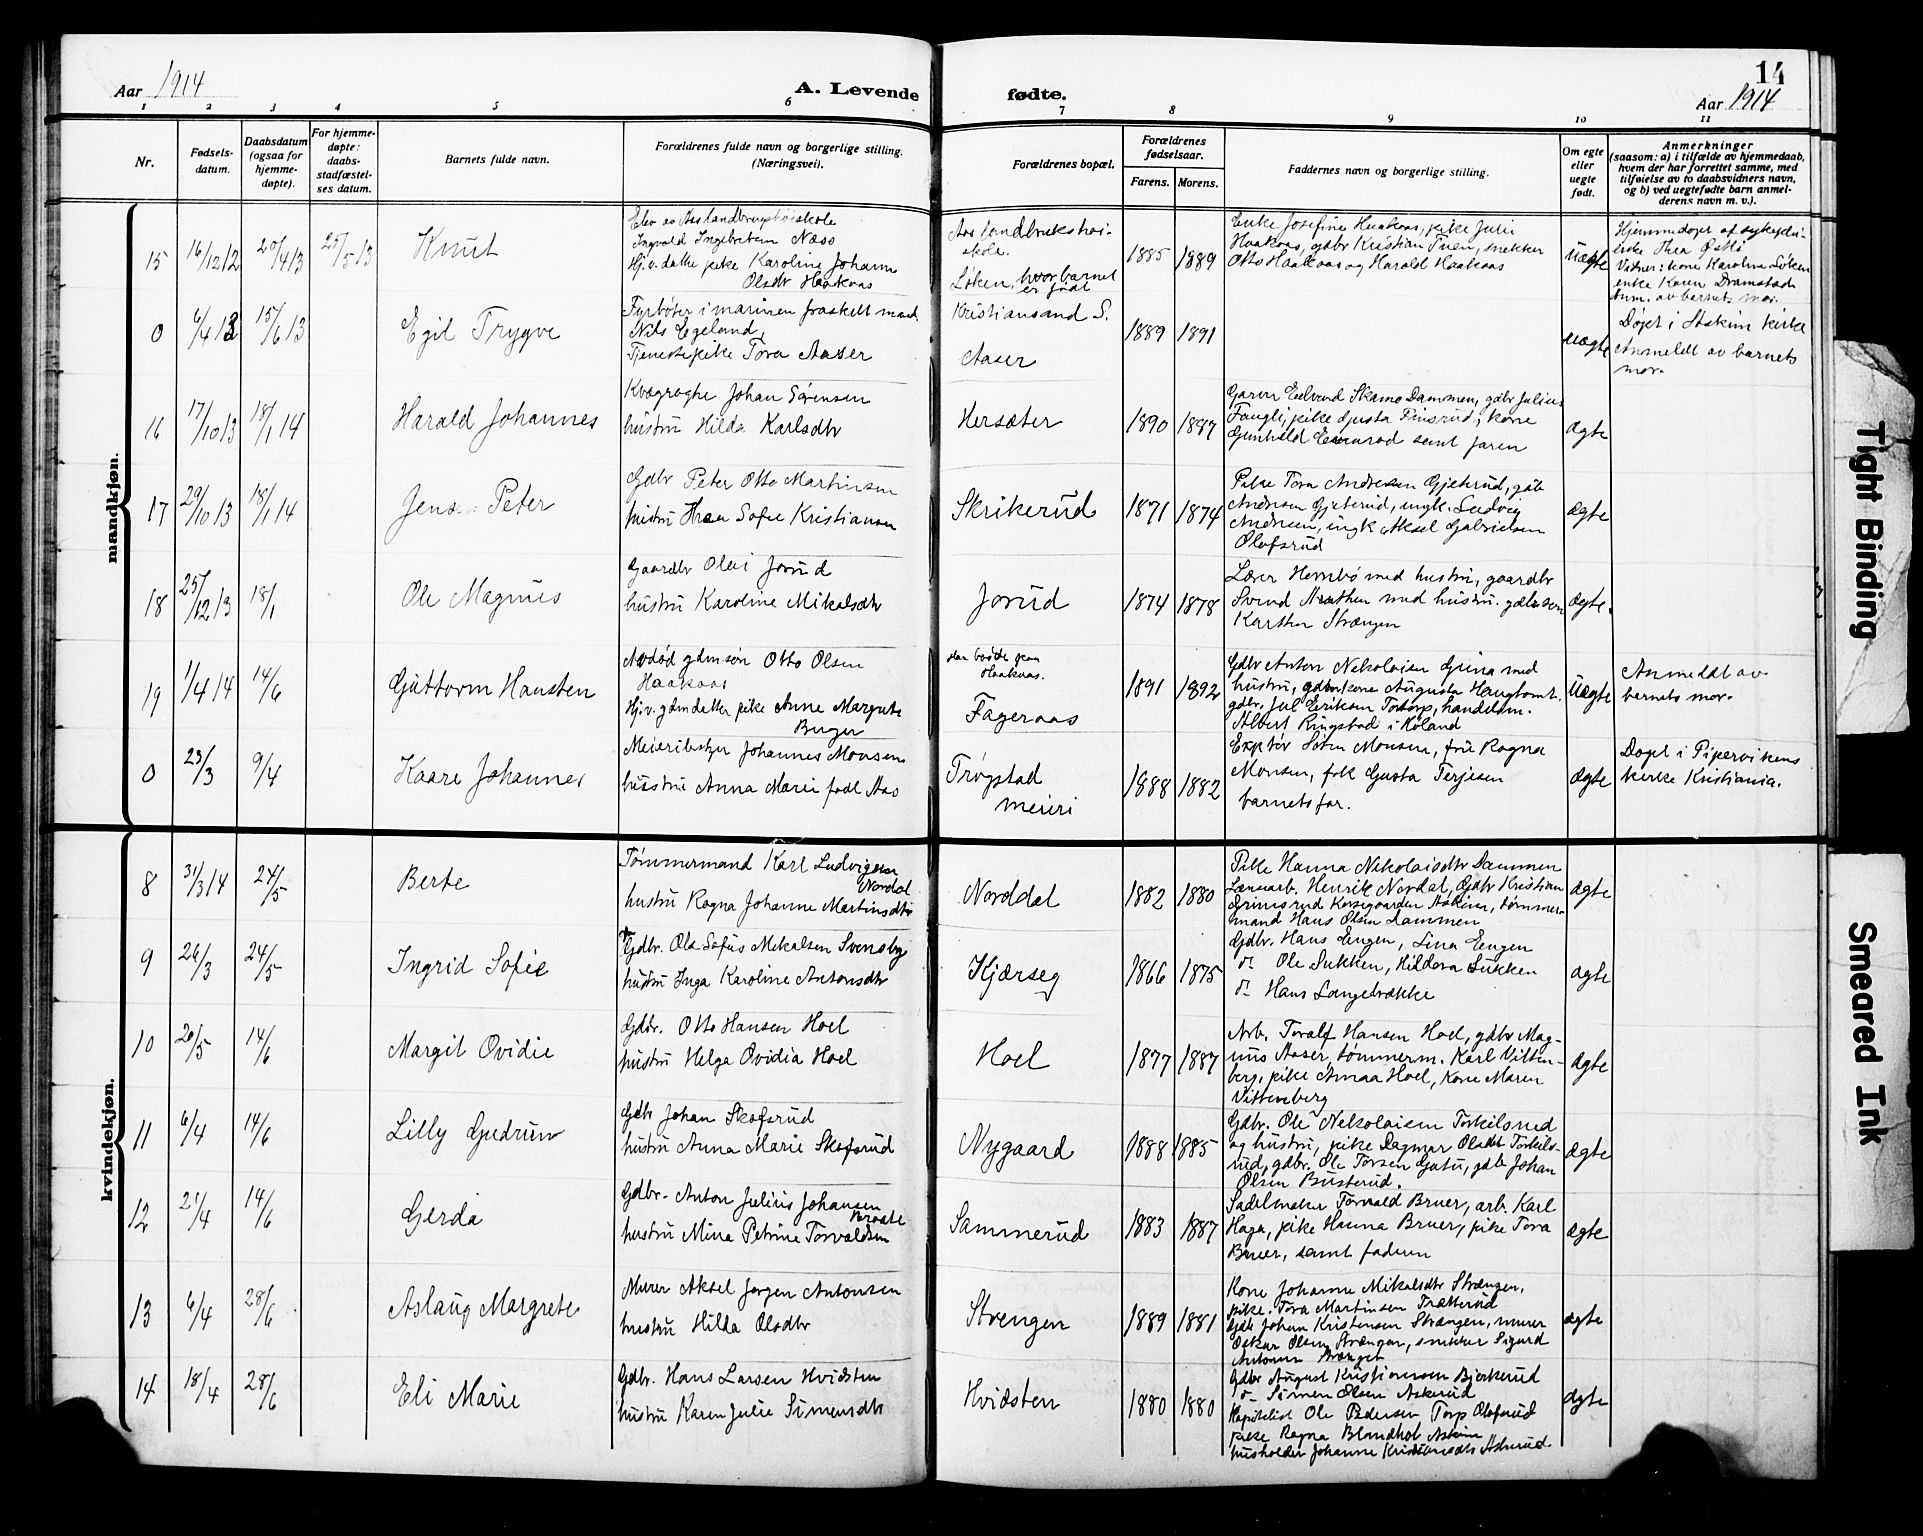 Aar 1914
A. Levende
fødte.
14
Aar 1914
1 2 3 4 5 6 7 8 9 10 11
Nr.
Fødsels-
datum.
Daabsdatum
(ogsaa for
hjemme-
døpte).
For hjemme-
døpte:
daabs-
stadfæstel-
ses datum.
Barnets fulde navn.
Forældrenes fulde navn og borgerlige stilling.
(Næringsvei).
Forældrenes bopæl.
Forældrenes
fødselsaar.
Farens. Morens.
Faddernes navn og borgerlige stilling.
Om egte
eller
uegte
født.
Anmerkninger
(saasom: a) i tilfælde av hjemmedaab,
hvem der har forrettet samme, med
tilføielse av to daabsvidners navn,
og b) ved uegtefødte barn anmel-
derens navn m. v.).
mandkjøn.
15 16/12 12 20/4 13 25/5 13 Knut
Elev av Aas landbrugshøiskole
Ingvald Ingebretsen Næss
Hj.v. datter pike Karoline Johanne
Olsdtr Haakaas
Aas landbrukshøi-
skole.
Løken, hvor barnet
er født
1885 1889
Enke Josefine Haakaas, pike Juli
Haakaas, gdbr Kristian Tuen, snekker
Otto Haakaas og Harald Haakaas
Uægte
Hjemmedøpt af sykeplei-
erske Thea
Vidner: kone Karoline Løken
enke Karen Dramstad
Anm. av barnets mor.
0 6/4 13 15/6 13 Egil Trygve
Fyrbøter i marinen fraskilt mand
Nils Egeland,
Tjenestepike Tora Aaser
Kristiansand S.
Aaser
1889 1891
uægte
Døpt i Askim kirke
Anmeldt av barnets
mor.
16 17/10 13 18/1 14 Harald Johannes
Kvægrøgter Johan Sørensen
hustru Hilda Karlsdtr
Hersæter
1890 1887
Garver Edvard Skamo Dammen, gdbr Julius
Faugli, pike Gusta Finsrud, kone
Gunhild samt faren
Ægte
17 29/10 13 18/1 14 Jens Peter
Gdbr Peter Otto Martinsen
hustru Sofie Kristiansen
Skrikerud
1871 1874
Pike Tora Andresen Gjeterud, gdb
Andresen Gjeterud, ungk. Ludvig
Andresen, ungk Aksel Gabrielsen
Olafsrud
Ægte
18 25/12 13 18/1 Ole Magnus
Gaardbr Olai Jorud
hustru Karoline Mikalsdtr
Jorud
1874 1878
Lærer Hornbø med hustru, gaardbr
Svend Næthen med hustru. gdbrsøn
Karsten Strængen
Ægte.
19 1/4 14 14/6 Guttorm Hansten
Avdød gdmsøn Otto Olsen
Haakaas
Hj.v. gdmdatter pike Anne Margrete
Berger
Han bodde paa
Haakaas.
Fageraas
1891 1892
Gdbr Anton Nikolaisen Grina med
hustru, gdbrkone Augusta Haugtomt.
gdbr. Jul Eriksen Tostorp, handelsm.
Albert Ringstad i Høland
Uægte
Anmeldt av
barnets mor.
0 23/3 9/4 Kaare Johannes
Meieribstyr Johannes Monsen
hustru Anna Marie født Aas
Trøgstad
meieri
1888 1882
Exptør Søren Monsen, fru Ragna
Monsen, frk Gusta Terjesen
barnets far.
Ægte
Døpt i Pipervikens
kirke Kristiania.
kvindekjøn.
8 31/3 14 24/5 Berte
Tømmermand Karl Ludvigsen
Norddal
hustru Ragna Johanne Martinsdtr
Norddal
1882 1880
Pike Hanna Nikolaisdtr Dammen
Lænsarb. Henrik Nordal, Gdbr Kristian
Grimsrud Korsegaarden Askim, tømmer-
mand Hans Olsen Dammen
ægte
9 26/3 24/5 Ingrid Sofie
Gdbr. Ole Sofus Mikalsen Svensby
hustru Inga Karoline Antonsdtr
Kjærseg
1866 1875
Gdbr. Hans Engen, Lina Engen
do. Ole Sukken, Hildora Sukken
do. Hans Langebrække
ægte
10 20/5 14/6 Margit Ovidie
Gdbr. Otto Hansen Hoel
hustru Helga Ovidia Hoel
Hoel
1877 1887
Arb. Toralf Hansen Hoel, gdbr Mag-
nus Aaser, tømmerm. Karl Vitten-
berg, pike Anna Hoel, Kone Maren
Vittenberg
Ægte
11 6/4 14/6 Lilly Gudrun
Gdbr Johan Skofsrud
hustru Anna Marie Skofsrud
Nygaard
1888 1885
Gdbr. Ole Nikolaisen Torkilsrud
og hustru, pike Dagmar Olsdtr Torkils-
rud, gdbr. Ole Torsen Gatu, gdb Johan
Olsen Busterud.
Ægte
12 21/4 14/6 Gerda
Gdbr. Anton Julius Johansen
Braate
hustru Mina Petrine Torvaldsen
Sammerud
1883 1887
Sadelmaker Torvald Bruer, arb. Karl
Haga, pike Hanna Bruer, pike Tora
Bruer, samt faderen
Ægte
13 6/4 28/6 Aslaug Margrete
Murer Aksel Jørgen Antonsen
hustru Hilda Olsdtr
Strengen
1889 1881
Kone Johanne Mikalsdtr Strængen,
pike. Tora Martinsen Trætterud
Gdb Johan Kristensen Strængen, murer
Oskar Olsen Strængen, snekker Sigurd
Antonsen Strænget
ægte
14 18/4 28/6 Eli Marie
Gdbr. Hans Larsen Hvidsten
hustru Karen Julie Simensdtr
Hvidsten
1880 1880
Gdbr August Kristiansen Bjerkerud
do. Simen Olsen Askerud
Kapitelist Ole Pedersen Torp Olafsrud
pike Ragna Blandhol Askim
husholder Johanne Kristiansdtr Askerud
ægte
Tight Binding
Smeared Ink